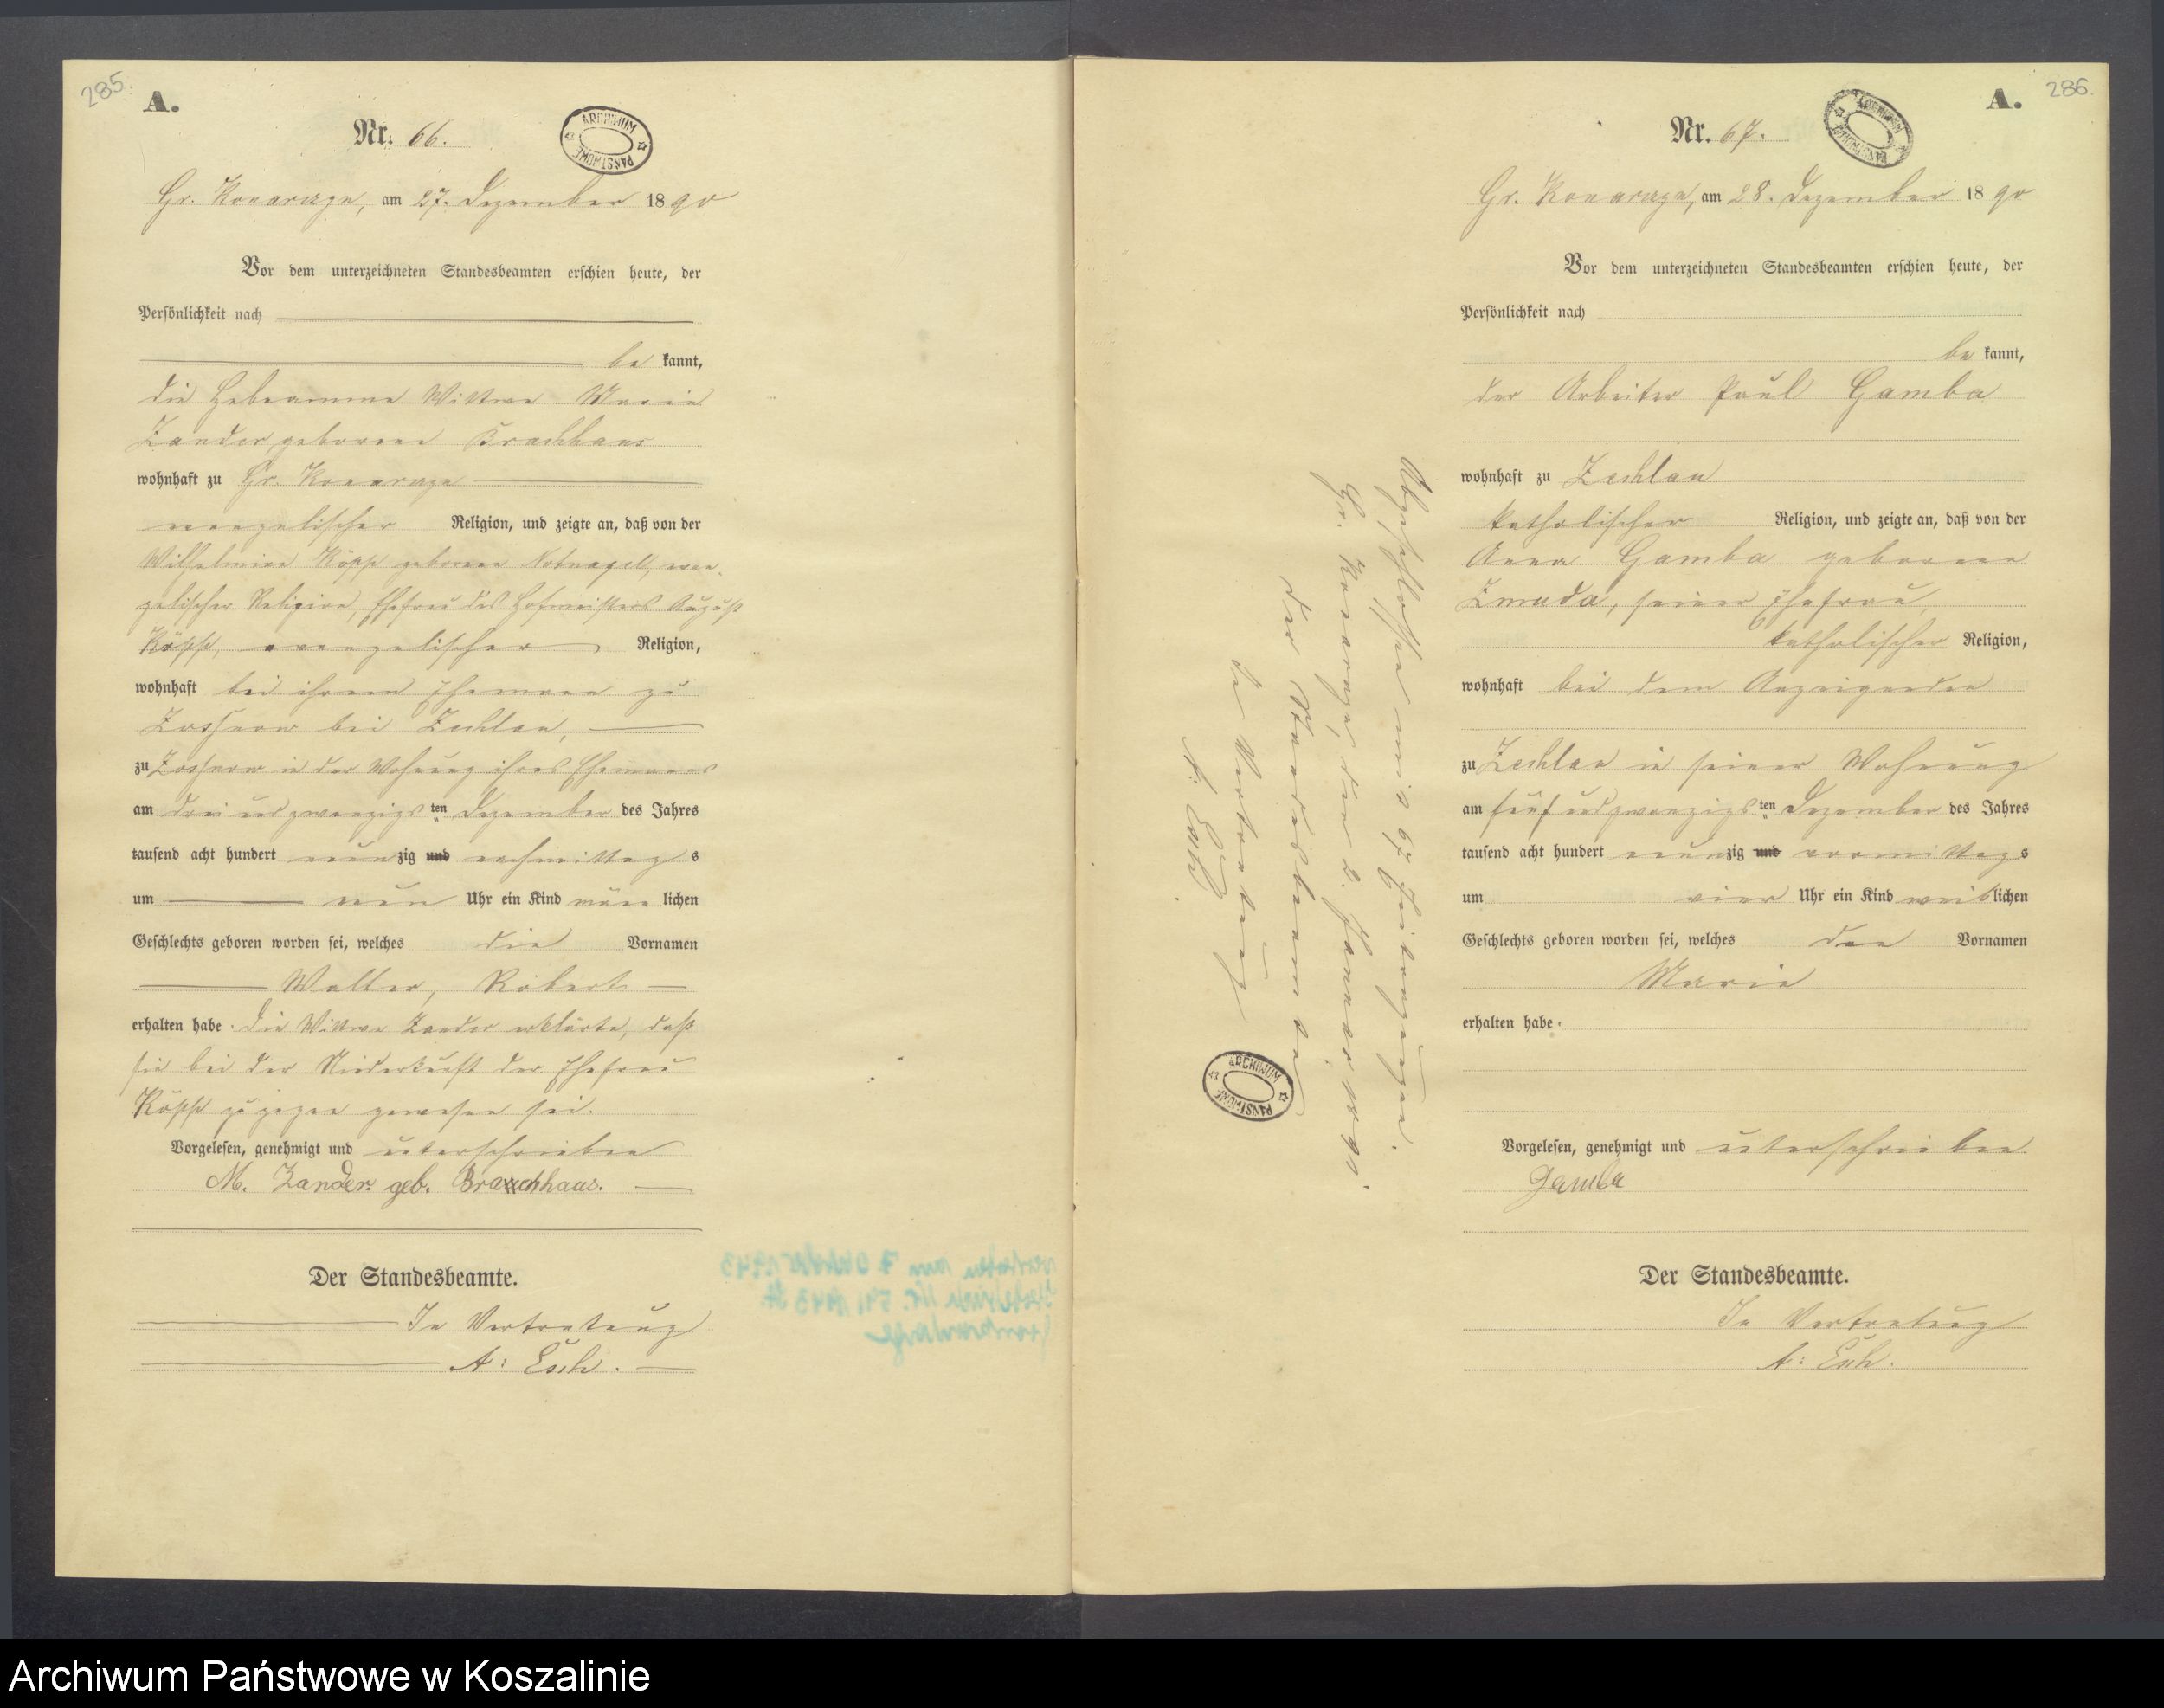 285.
A.
Nr. 66.
ARCHIWUM PAŃSTWOWE
Gr. Konarczyn, am 27. Dezember 1890
Vor dem unterzeichneten Standesbeamten erschien heute, der
Persönlichkeit nach
be kannt,
die Hebeamme Wittwe Marie
Zander, geborene Brachhaus
wohnhaft zu Gr. Konarczyn
evangelischer Religion, und zeigte an, daß von der
Wilhelmine Köpp geborene Notnagell, evan-
gelischer Religion, Ehefrau des Hofmeisters August
Köpp, evangelischer Religion,
wohnhaft bei ihrem Ehemann zu
bei Zechlau,
zu in der Wohnung ihres Ehemanns
am drei und zwanzigs ten Dezember des Jahres
tausend acht hundert neunzig und nachmittags
um neun Uhr ein Kind männlichen
Geschlechts geboren worden sei, welches die Vornamen
Walter, Robert
erhalten habe. Die Wittwe Zander erklärte, daß
sie bei der Niederkunft der Ehefrau
Köpp zugegen gewesen sei.
Vorgelesen, genehmigt und unterschrieben
M. Zander geb. Brachhaus.
Der Standesbeamte.
In Vertretung
A: Esch.
286.
A.
Nr. 67.
ARCHIWUM PAŃSTWOWE
Gr. Konarczyn, am 28. Dezember 1890
Vor dem unterzeichneten Standesbeamten erschien heute, der
Persönlichkeit nach
be kannt,
der Arbeiter Paul Gamba
wohnhaft zu Zechlau
katholischer Religion, und zeigte an, daß von der
Anna Gamba geborene
Zmuda, seiner Ehefrau,
katholischer Religion,
wohnhaft bei dem Anzeigenden
zu Zechlau in seiner Wohnung
am fünf und zwanzigs ten Dezember des Jahres
tausend acht hundert neunzig und vormittags
um vier Uhr ein Kind weiblichen
Geschlechts geboren worden sei, welches den Vornamen
Marie
erhalten habe.
Vorgelesen, genehmigt und unterschrieben
Gamba
Der Standesbeamte.
In Vertretung
A: Esch.
Abgeschlossen mit 67 Eintragungen.
Gr. Konarczyn, den 2. Januar 1891.
Der Standesbeamte
In Vertretung
A: Esch.
ARCHIWUM PAŃSTWOWE
Archiwum Państwowe w Koszalinie